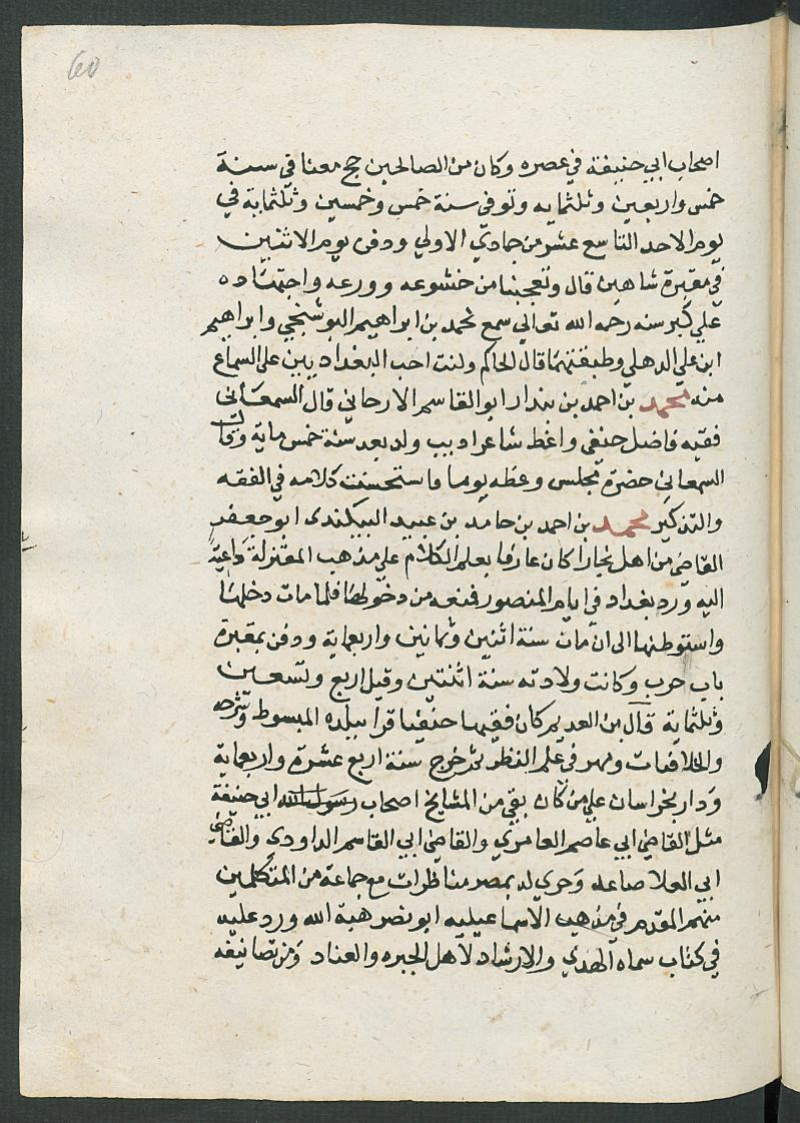 60
اصحاب ابي حنيفة في عصره وكان من الصالحين حج معنا في سنة
خمس واربعين وثلثمايه وتوفى سنة خمس وخمسين وثلثماية في
يوم الاحد التاسع عشر من جمادي الاولي ودفن يوم الاثنين
في مقبرة شاهين قال وتعجبنا من خشوعه وورعه واجتهاده
علي كبر سنه رحمه الله تعالي سمع محمد بن ابراهيم البوشنجي وابراهيم
ابن علي الدهلي وطبقتهما قال الحاكم ولنت احب البغداديين علي السماع
منه محمد بن احمد بن بندار ابو القاسم الارحاني قال السمعاني
فقيه فاضل حنفي واعظ شاعر اديب ولد بعد سنة خمس ماية وقال
السمعاني حضرة مجلس وعظه يوما فاستحسنت كلامه في الفقه
والتذكير محمد بن احمد بن حامد بن عبيد البيكندى ابو جعفر
القاضي من اهل بخارا كان عارفا بعلم الكلام علي مذهب المعتزلة داعية
اليه ورد بغداد في ايام المنصور فمنعه من دخولها فلما مات دخلها
واستوطنها الى ان مات سنة اثنين وثمانين واربعماية ودفن بمقبرة
باب حرب وكانت ولادته سنة اثنتين وقيل اربع وتسعين
وثلثماية قال بن العديم كان فقيها حنفيا قرا ببلده المبسوط وشرحه
والخلافيات ومهر في علم النظر ثم خرج سنة اربع عشرة واربعماية
ودار بخراسان علي من كان بقي من المشايخ اصحاب رسول الله ابي حنيفة
مثل القاضي ابي عاصم العامري والقاضي ابي القاسم الداودي والقاضي
ابي العلا صاعد وجري له بمصر مناظرات مع جماعة من المتكلمين
منهم المقدم في مذهب الاسماعيليه ابو نصر هبة الله ورد عليه
في كتاب سماه الهدي والارشاد لاهل الجبره والعناد ومن تصانيفه